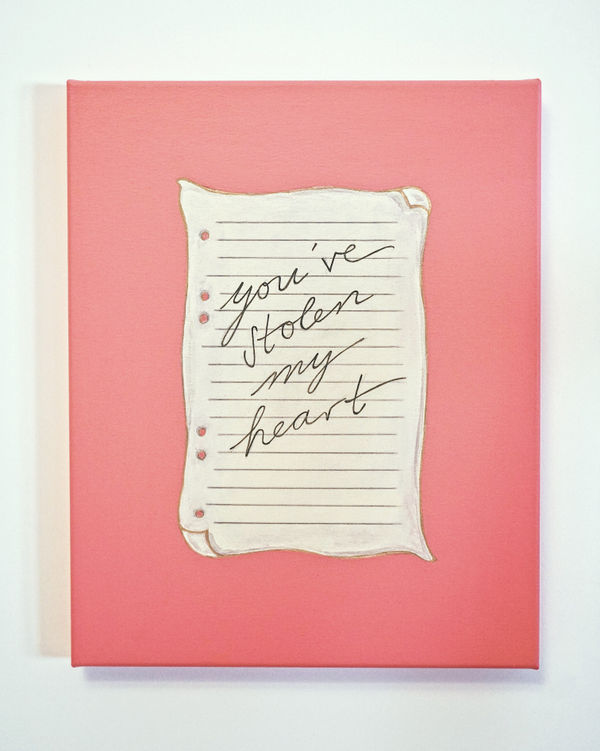 you've
stolen
my
heart